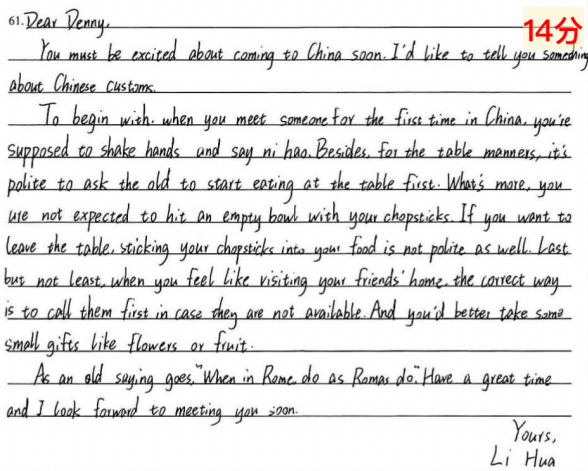 14分
61. Dear Denny,
You must be excited about coming to China soon. I'd like to tell you something
about Chinese customs.
To begin with, when you meet someone for the first time in China, you're
supposed to shake hands and say ni hao. Besides, for the table manners, it's
polite to ask the old to start eating at the table first. What's more, you
are not expected to hit an empty bowl with your chopsticks. If you want to
leave the table, sticking your chopsticks into your food is not polite as well. Last
but not least, when you feel like visiting your friends' home, the correct way
is to call them first in case they are not available. And you'd better take some
small gifts like flowers or fruit.
As an old saying goes, "When in Rome, do as Romas do." Have a great time
and I look forward to meeting you soon.
Yours,
Li Hua